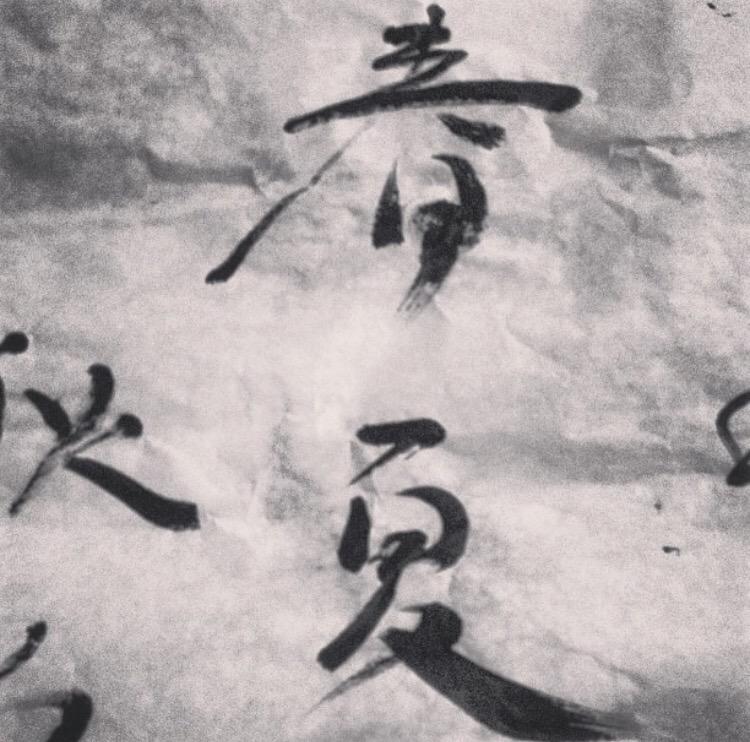 春夏
秋